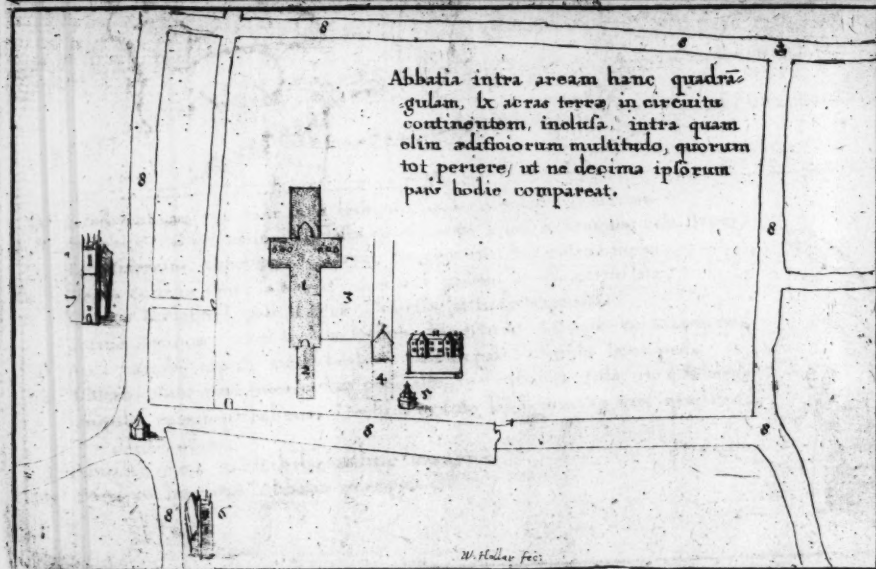 8
8
8
Abbatia intra aream hanc quadrā-
-gulam, lx acras terræ, in circuitu
continentem, inclusa, intra quam
olim ædificiorum multitudo, quorum
tot periere, ut ne decima ipsorum
pars hodie compareat.
8
8
1
3
2
4
5
8
8
8
6
W. Hollar fec: